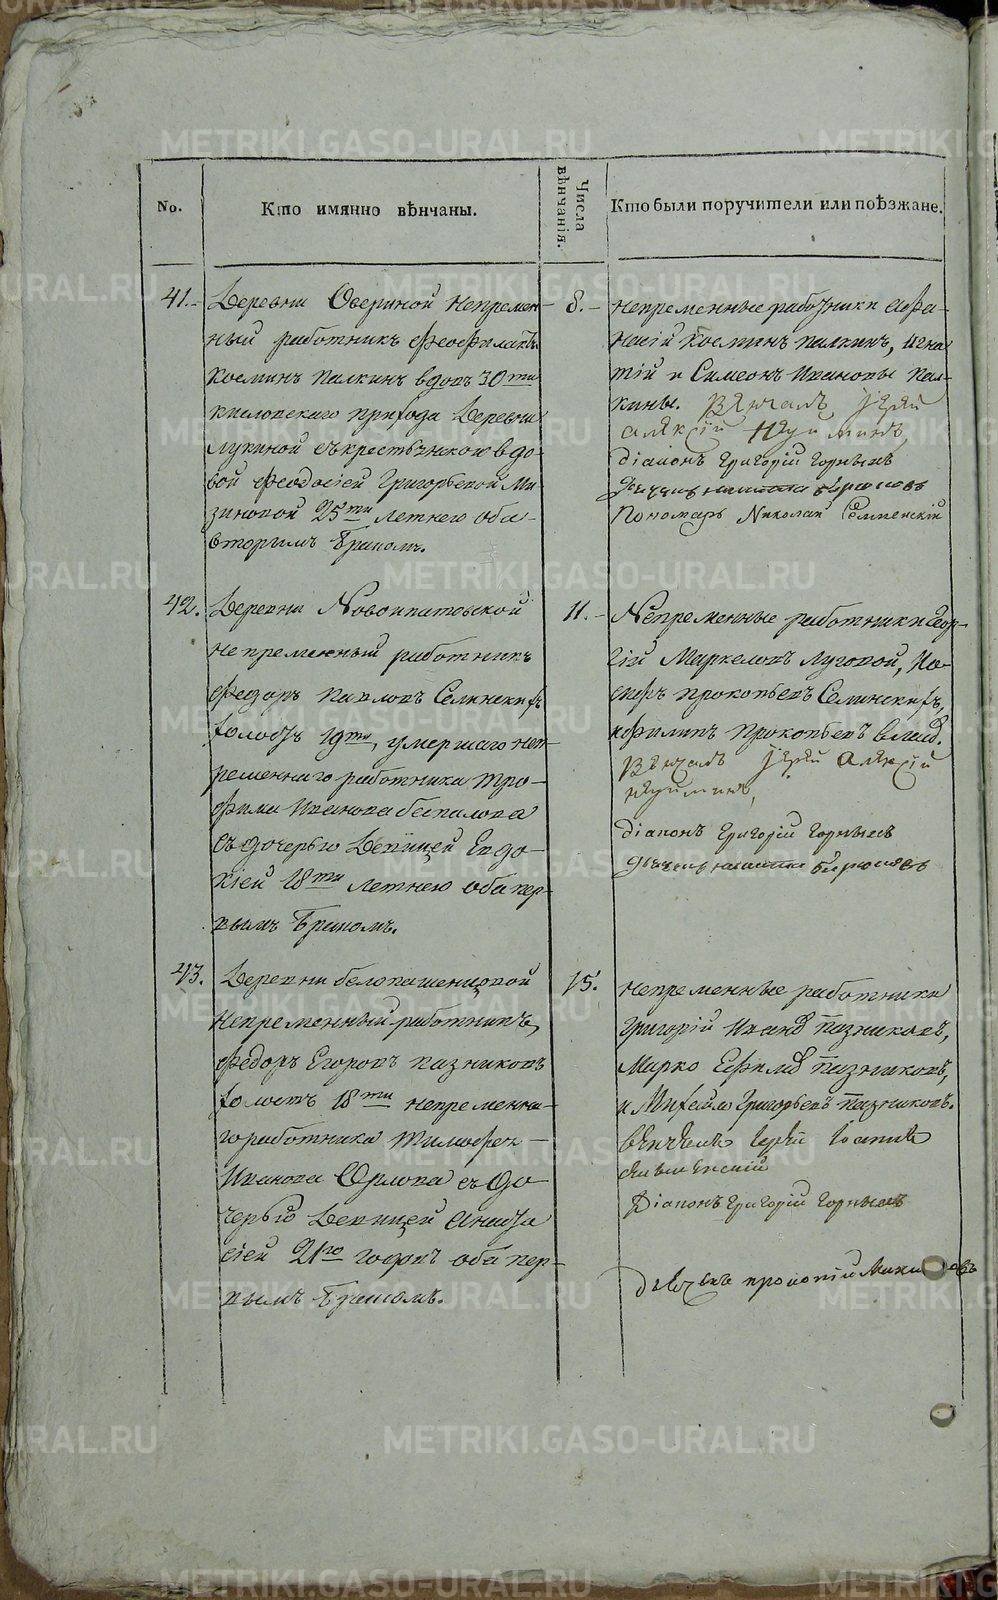 No.
Кто имянно вѣнчаны.
Числа вѣнчанія.
Кто были поручители или поѣзжане.
41.
Деревни Овериной непремен-
ный работникъ Феофилактъ
Косминъ Палкинъ вдовъ 30ти
Кисловскаго прихода деревни
Лукиной съ крестьянкою вдо-
вой Феодосіей Григорьевой Ми-
зиновой 25ти летнею оба
вторымъ бракомъ.
8.
непременные работники Афа-
насій Косминъ Палкинъ, Игна
тій и Симеонъ Ивановы Пал-
кины. Вѣнчалъ Іерей
Алексій Неуйминъ
діаконъ Григорій Горныхъ
Пономарь Николай
42.
Деревни Новоипатовской
непременный работникъ
Феодоръ Павловъ Селинскихъ
холостъ 19ти, умершаго неп-
ременнаго работника Тро-
фима Иванова Беспалова
съ дочерью девицей Евдо-
кіей 18ти летнею оба пер-
вымъ бракомъ.
11.
Непременные работники Геор-
гій Маркеловъ Луговой, Іо-
сифъ Прокопьевъ Селинскихъ,
и Филипъ Прокопьевъ
Вѣнчалъ Іерей Алексій
Неуйминъ,
діаконъ Григорій Горныхъ
43.
Деревни Белопашенцовой
непременный работникъ,
Федоръ Егоровъ Пазниковъ
холостъ 18ти непременна-
го работника Тимофея
Иванова Орлова съ до-
черью девицей Анаста
сіей 21го годовъ оба пер-
вымъ бракомъ.
15.
непременные работники
Григорій Иванов Пазниковъ,
Марко Ефимов Пазниковъ,
и Михайло Григорьевъ Пазниковъ.
вѣнчалъ Іерей Іоаннъ
Діаконъ Григорій Горныхъ
дьячекъ Прокопій
METRIKI.GASO-URAL.RU